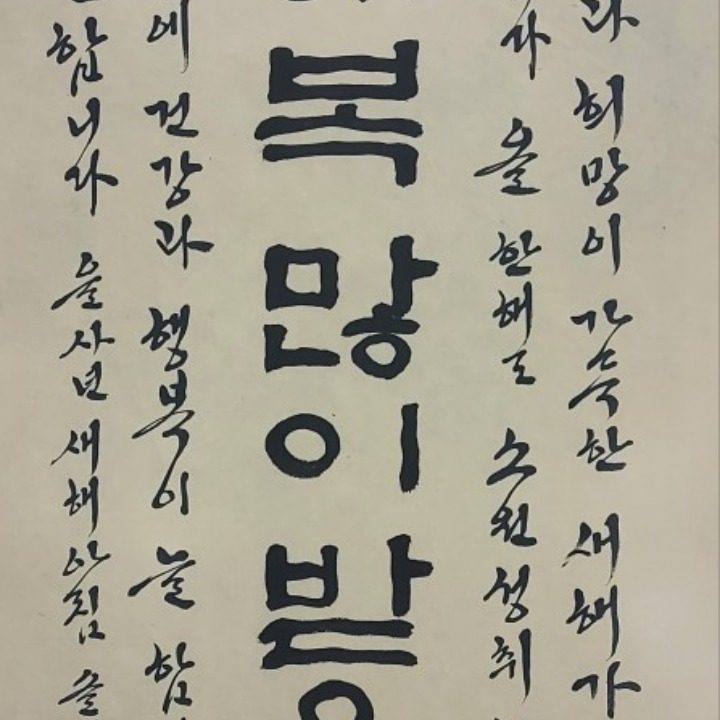 과 희망이 가득한 새해가
다 올 한해도 소원성취
복 많이 받
에 건강과 행복이 늘 함
합니다 을사년 새해 아침